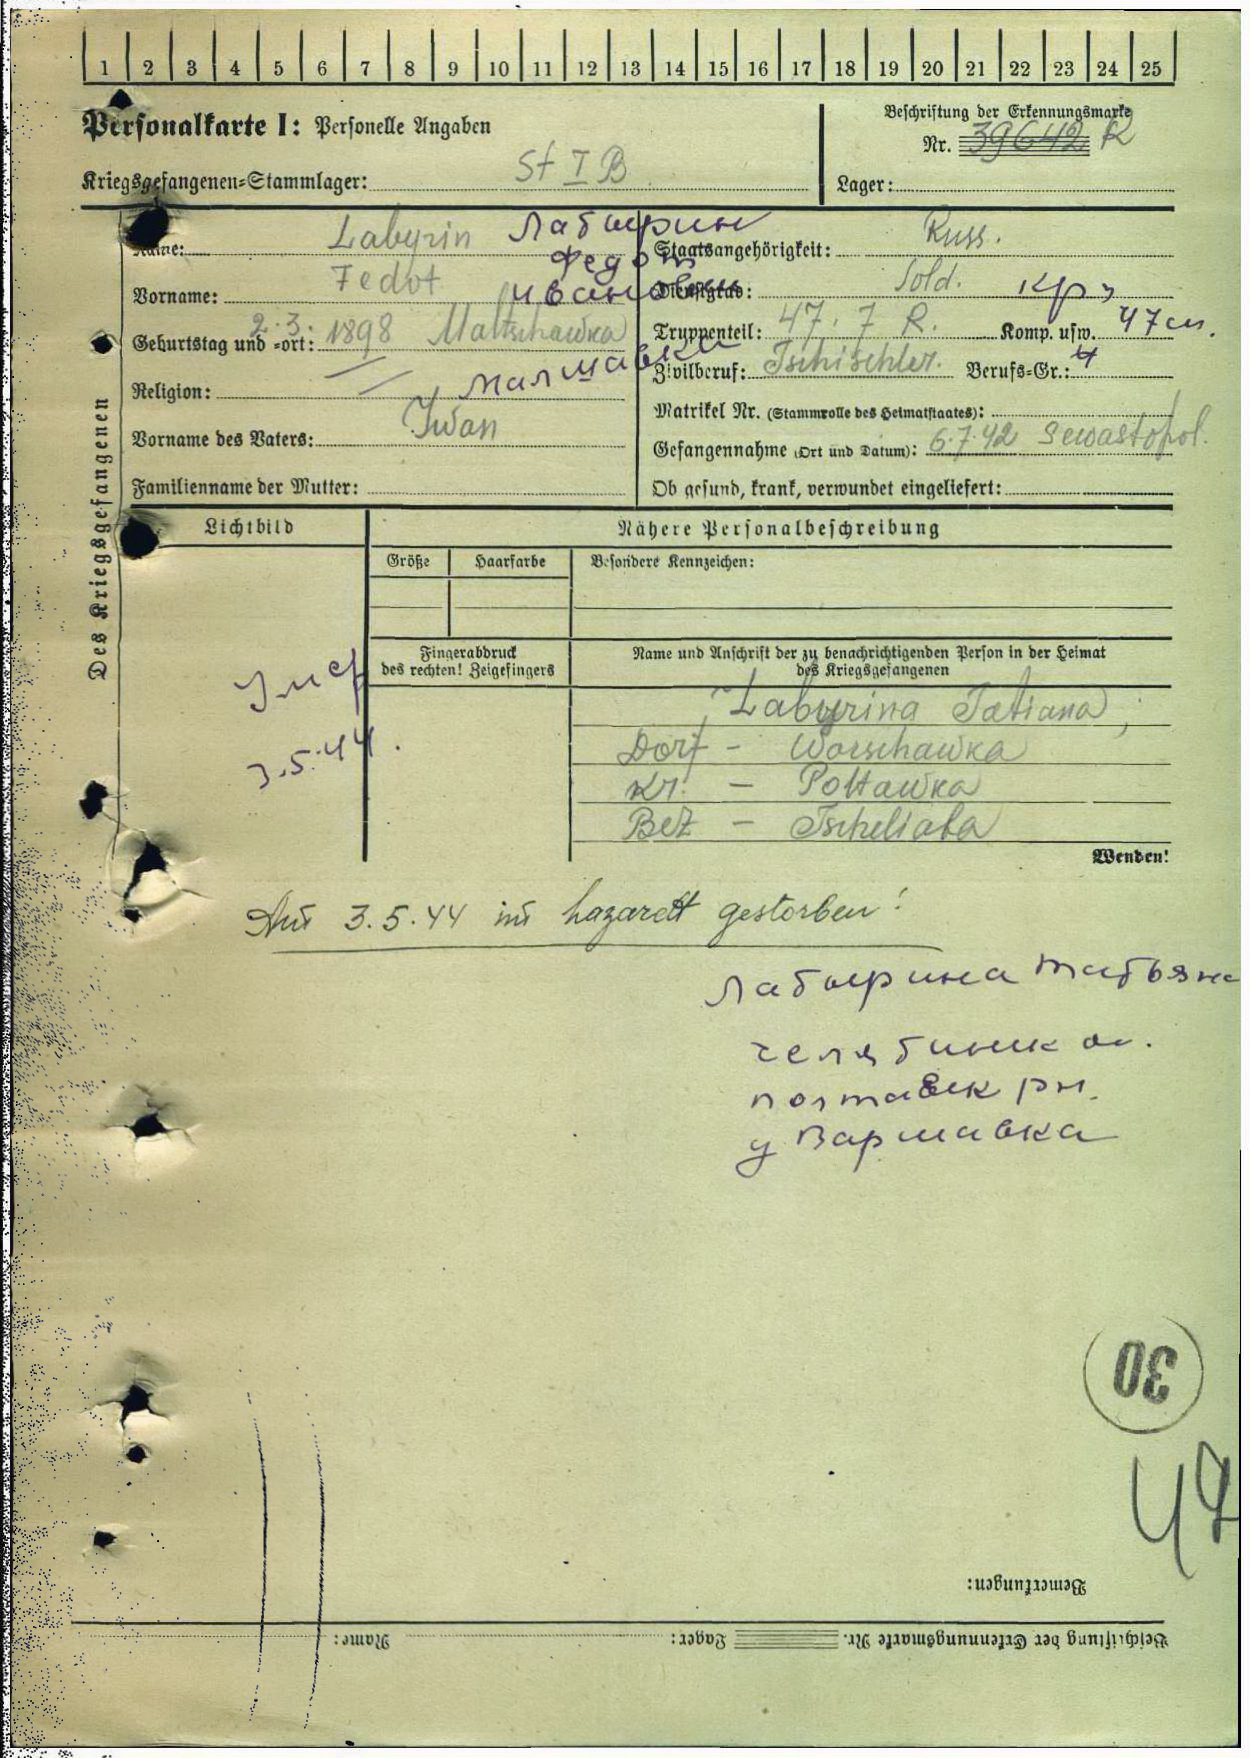 1 2 3 4 5 6 7 8 9 10 11 12 13 14 15 16 17 18 19 20 21 22 23 24 25
Personalkarte I: Personelle Angaben
Beschriftung der Erkennungsmarke
Nr. 39642 R
Kriegsgefangenen-Stammlager: St I B
Lager:
Des Kriegsgefangenen
Name: Labyrin Лабырин
Vorname: Fedot Федот Иванович
Geburtstag und -ort: 2.3. 1898 Maltschawka
Religion: малшавка
Vorname des Vaters: Iwan
Familienname der Mutter:
Staatsangehörigkeit: Russ.
Dienstgrad: Sold. кр
Truppenteil: 47. 7 R. Komp. usw. 47
Zivilberuf: Tschischler. Berufs-Gr.: 4
Matrikel Nr. (Stammrolle des Heimatstaates):
Gefangennahme (Ort und Datum): 6.7.42 Sewastopol.
Ob gesund, krank, verwundet eingeliefert:
Lichtbild
Nähere Personalbeschreibung
Größe Haarfarbe Besondere Kennzeichen:
Fingerabdruck
des rechten! Zeigefingers
Name und Anschrift der zu benachrichtigenden Person in der Heimat
des Kriegsgefangenen
Умер
3.5.44.
Labyrina Tatiana,
Dorf - Worschawka
Kr. - Poltawka
Bez - Tscheliaba
Wenden!
Am 3.5.44 im Lazarett gestorben!
Лабырина Татьяна
челябинск ол.
полтавск рн.
у Варшавка
30
47
Bemerkungen:
Beschriftung der Erkennungsmarke Nr. Lager: Name: